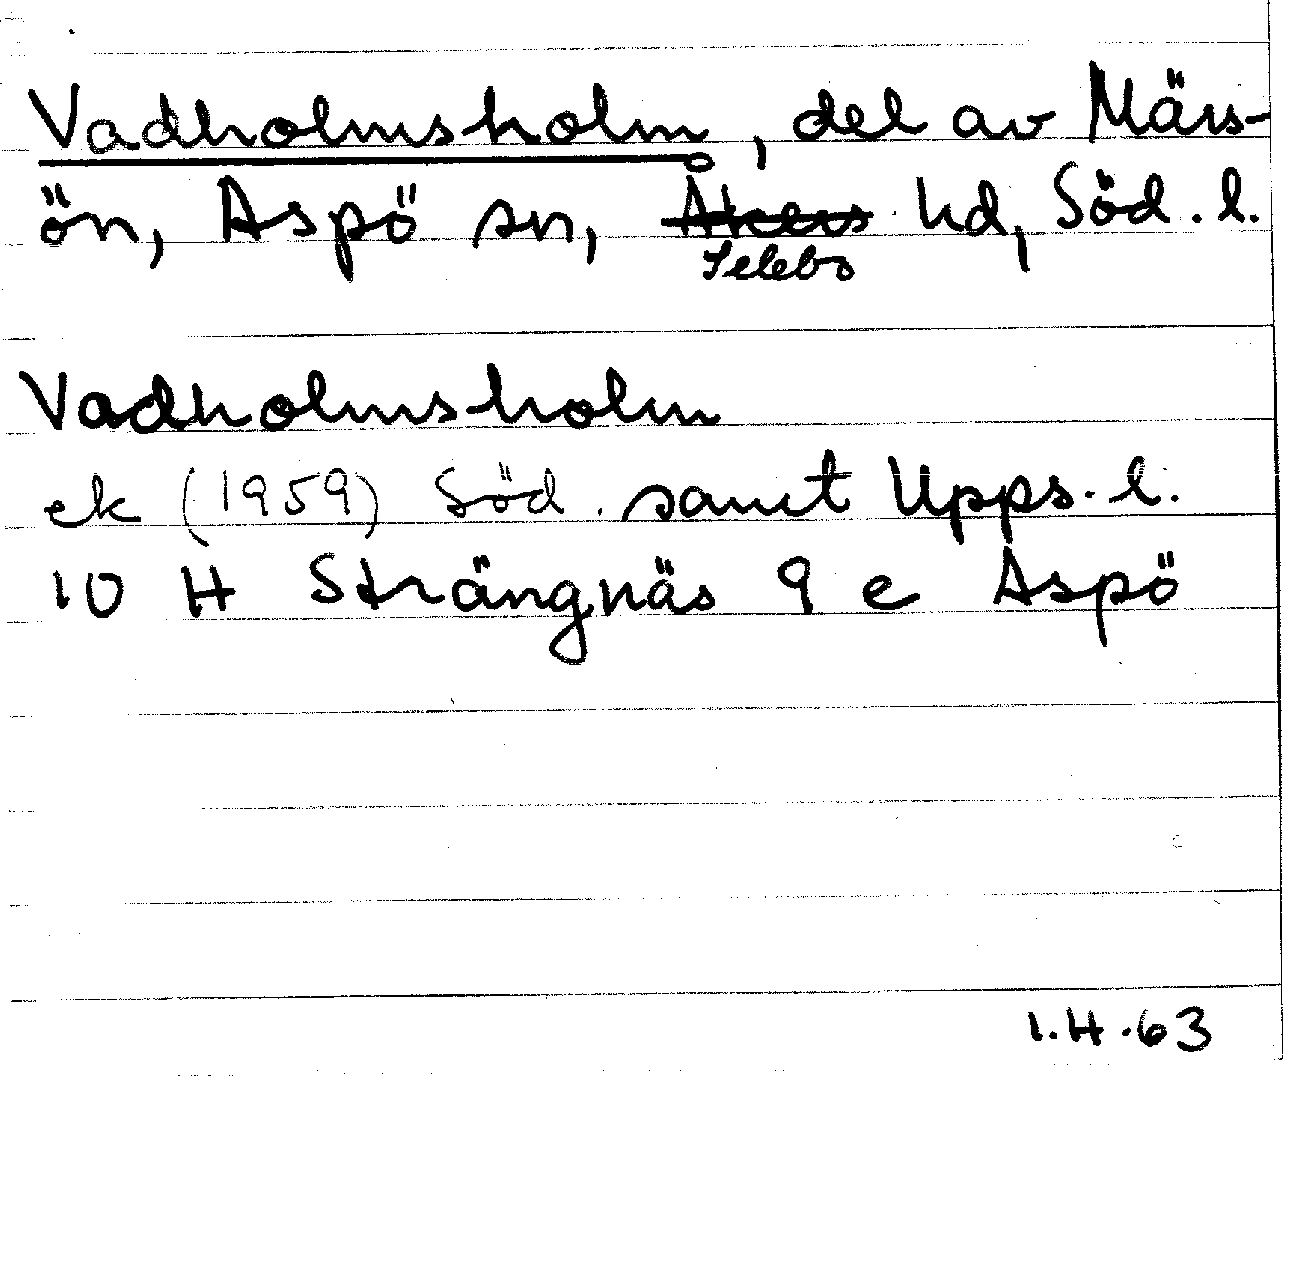 Vadholmsholm, del av Märs-
ön, Aspö sn, Åkers hd, Söd. l.
Selebo
Vadholmsholm
ek (1959) Söd. samt Upps. l.
10 H Strängnäs 9 e Aspö
1.H.63